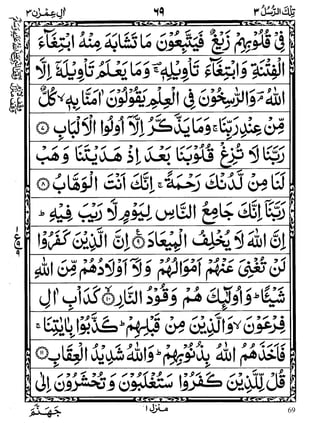 تِلْكَ الرُّسُلُ ٣
٦٩
اٰلِ عِمْرٰن ٣
فِیْ قُلُوْبِهِمْ زَیْغٌ فَیَتَّبِعُوْنَ مَا تَشَابَهَ مِنْهُ ابْتِغَآءَ
الْفِتْنَةِ وَابْتِغَآءَ تَاْوِیْلِهٖ ۚ وَمَا یَعْلَمُ تَاْوِیْلَهٗۤ اِلَّا
اللّٰهُ ۘ وَالرّٰسِخُوْنَ فِی الْعِلْمِ یَقُوْلُوْنَ اٰمَنَّا بِهٖ ۙ كُلٌّ
مِّنْ عِنْدِ رَبِّنَا ۚ وَمَا یَذَّكَّرُ اِلَّاۤ اُولُوا الْاَلْبَابِ ۝٧
رَبَّنَا لَا تُزِغْ قُلُوْبَنَا بَعْدَ اِذْ هَدَیْتَنَا وَهَبْ
لَنَا مِنْ لَّدُنْكَ رَحْمَةً ۚ اِنَّكَ اَنْتَ الْوَهَّابُ ۝٨
رَبَّنَاۤ اِنَّكَ جَامِعُ النَّاسِ لِیَوْمٍ لَّا رَیْبَ فِیْهِ ؕ
اِنَّ اللّٰهَ لَا یُخْلِفُ الْمِیْعَادَ ۝٩ اِنَّ الَّذِیْنَ كَفَرُوْا
لَنْ تُغْنِیَ عَنْهُمْ اَمْوَالُهُمْ وَلَاۤ اَوْلَادُهُمْ مِّنَ اللّٰهِ
شَیْئًا ؕ وَاُولٰٓئِكَ هُمْ وَقُوْدُ النَّارِ ۝١٠ كَدَاْبِ اٰلِ
فِرْعَوْنَ ۙ وَالَّذِیْنَ مِنْ قَبْلِهِمْ ؕ كَذَّبُوْا بِاٰیٰتِنَا ۚ
فَاَخَذَهُمُ اللّٰهُ بِذُنُوْبِهِمْ ؕ وَاللّٰهُ شَدِیْدُ الْعِقَابِ ۝١١
قُلْ لِّلَّذِیْنَ كَفَرُوْا سَتُغْلَبُوْنَ وَتُحْشَرُوْنَ اِلٰی
جَهَنَّمَ
منزل ١
69